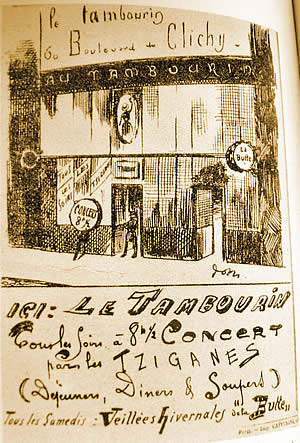 le tambourin
60 Boulevard de Clichy -
AU TAMBOURIN
La
Butte
CONCERT
8h½
ICI: LE TAMBOURIN
Tous les soirs à 8h½ CONCERT
par les TZIGANES
(Déjeuners, Dîners & Soupers)
Tous les Samedis: Veillées Hivernales de la "Butte"